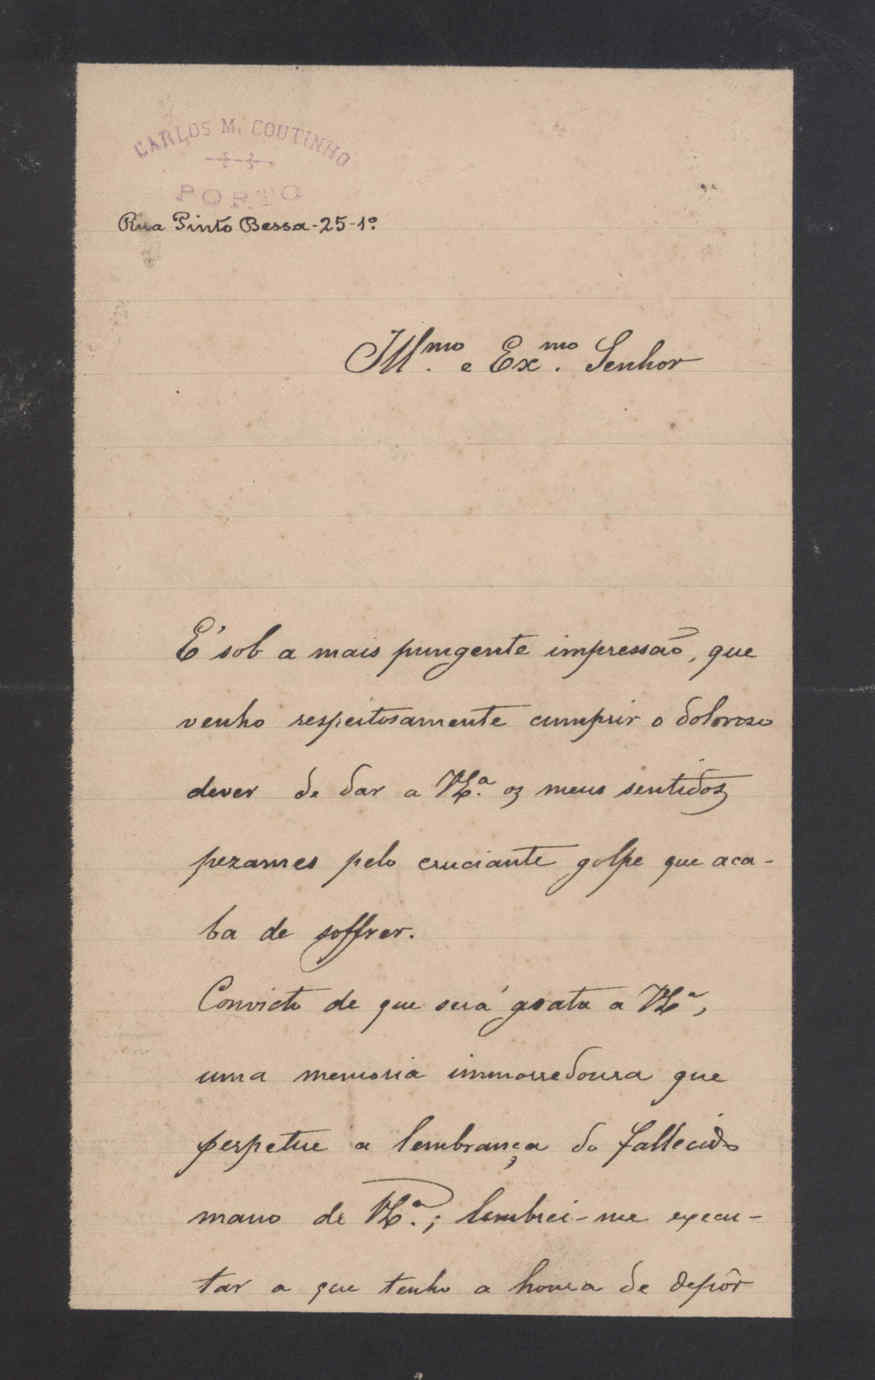 CARLOS M. COUTINHO
PORTO
Rua Pinto Bessa-25-1º
Ill.mo e Ex.mo Senhor
É sob a mais pungente impressão, que
venho respeitosamente cumprir o doloroso
dever de dar a V.Ex.ª os meus sentidos
pezames pelo cruciante golpe que aca-
ba de soffrer.
Convicto de que será grata a V.Ex.ª,
uma memoria immorredoura que
perpetue a lembrança do fallecido
mano de V.Ex.ª; lembrei-me execu-
tar a que tenho a honra de depôr